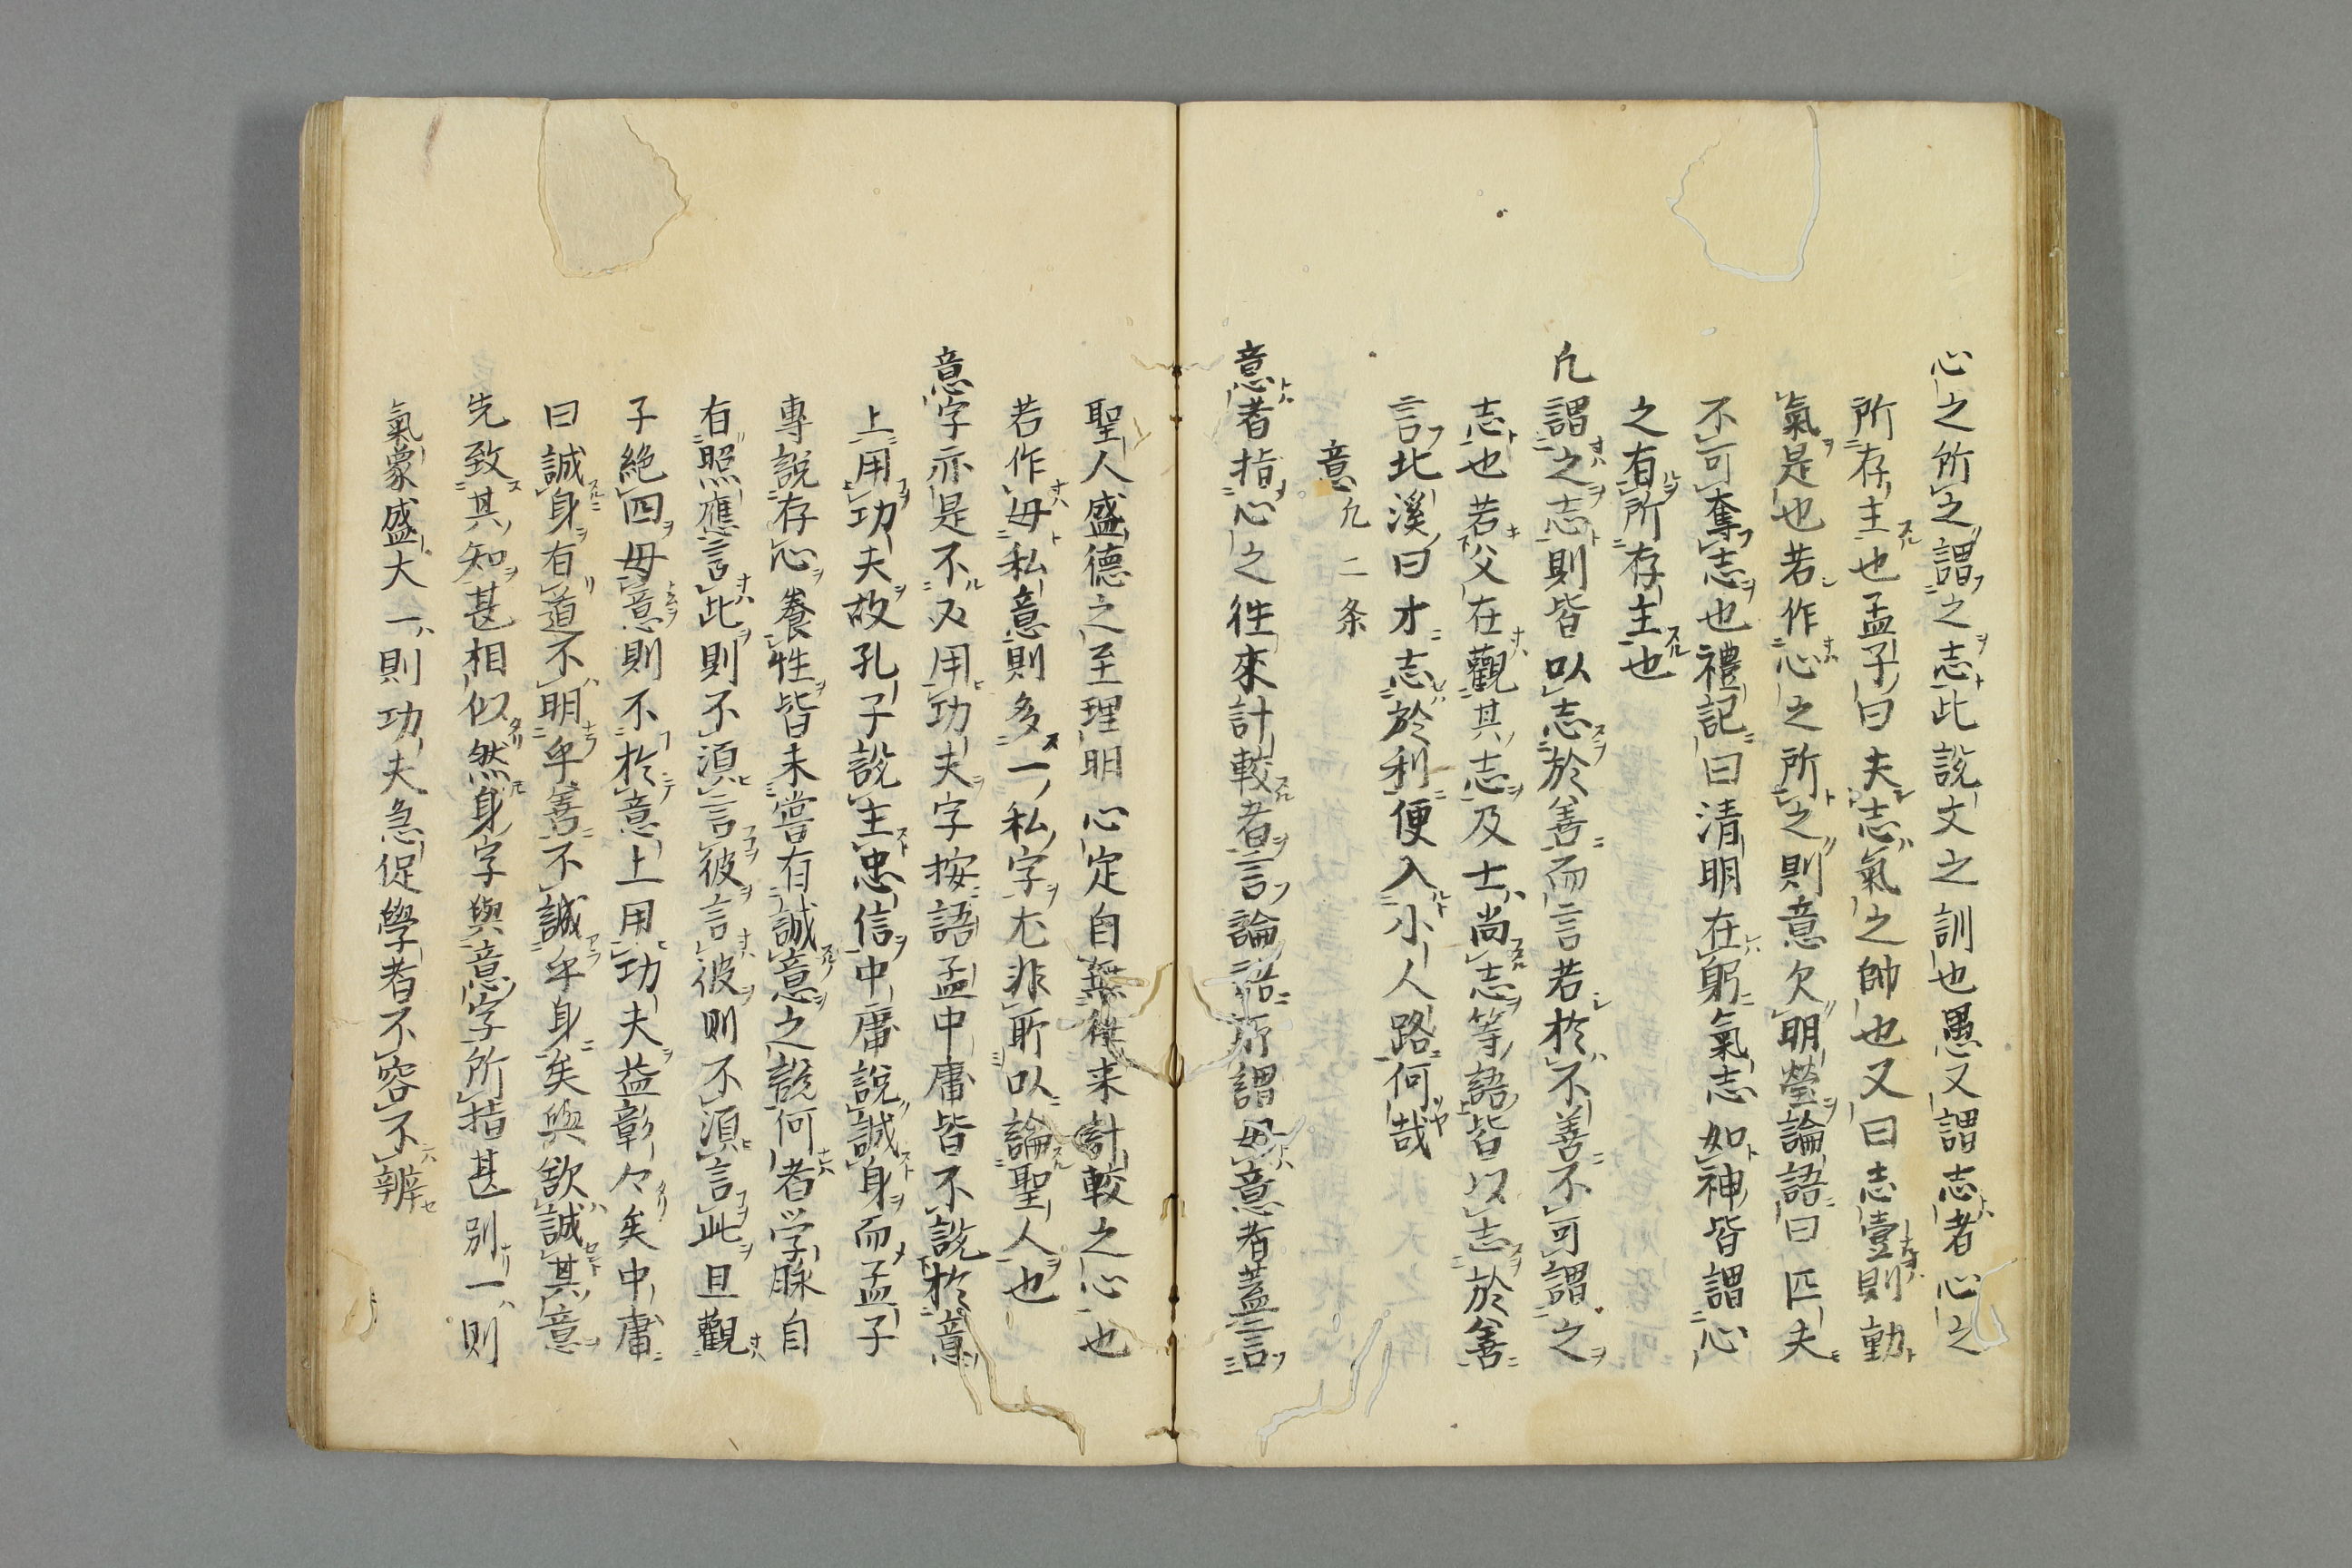 心之所之謂之志此說文之訓也愚又謂志者心之
所存主也孟子曰夫志氣之帥也又曰志壹則動
氣是也若作心之所之則意欠明瑩論語曰匹夫
不可奪志也禮記曰清明在躬氣志如神皆謂心
之有所存主也
凡謂之志則皆以志於善而言若於不善不可謂之
志也若父在觀其志及士尚志等語皆以志於善
言北溪曰才志於利便入小人路何哉
意凡二条
意者指心之往來計較者言論語所謂毋意者蓋言
聖人盛德之至理明心定自無往来計較之心也
若作毋私意則多一私字尤非所以論聖人也
意字亦是不又用功夫字按語孟中庸皆不說於意
上用功夫故孔子說主忠信中庸說誠身而孟子
專說存心養性皆未嘗有誠意之說何者学脉自
有照應言此則不須言彼言彼則不須言此且觀
子絶四毋意則不於意上用功夫益彰々矣中庸
曰誠身有道不明乎善不誠乎身矣與欲誠其意
先致其知甚相似然身字與意字所指甚別一則
氣象盛大一則功夫急促學者不容不辨